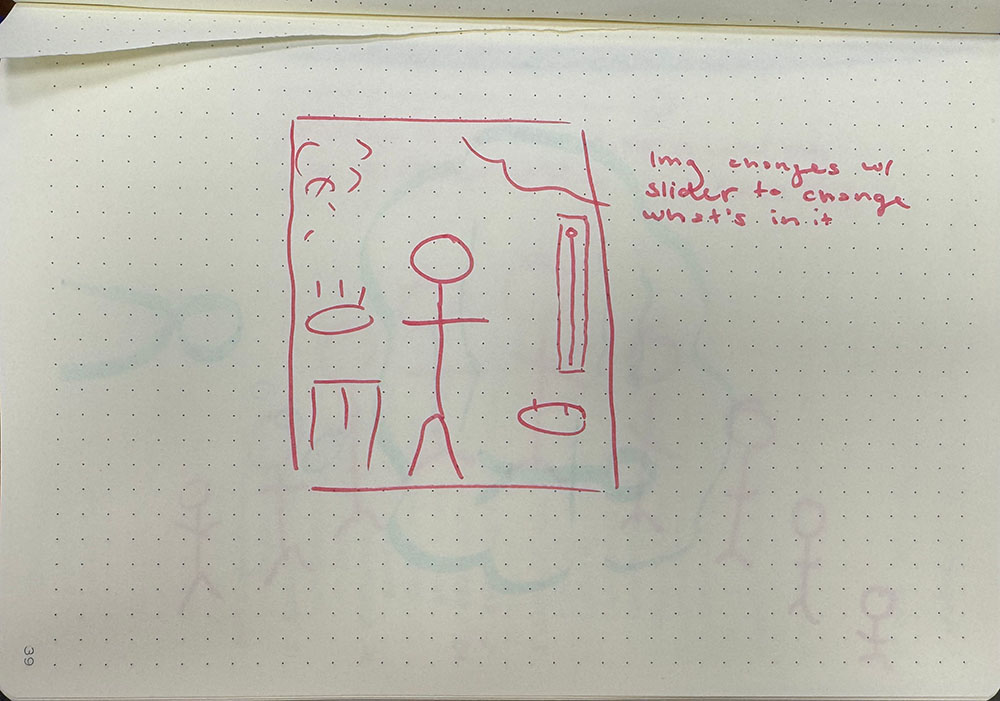 Img changes w/
slider to change
what's in it
39